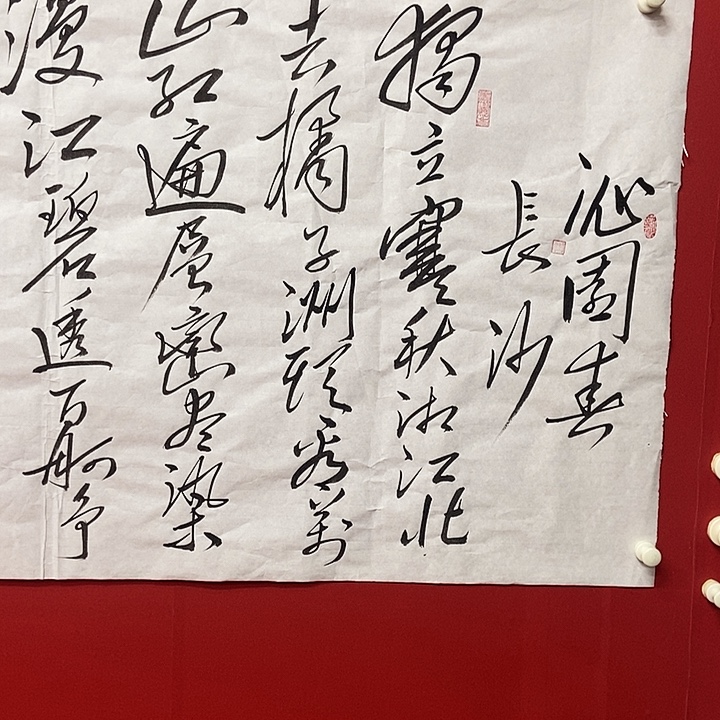 沁園春
長沙
獨立寒秋湘江北
去橘子洲頭看萬
山红遍層巒尽染
漫江碧透百舸争